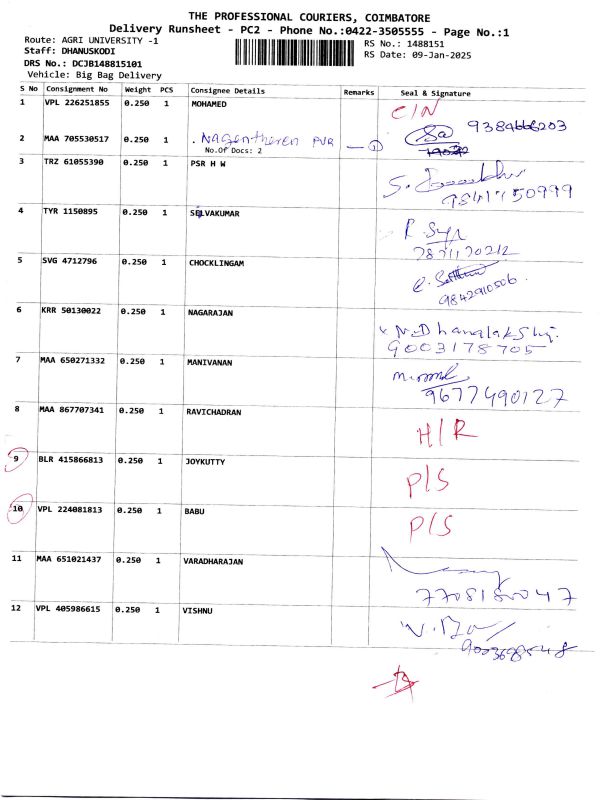 THE PROFESSIONAL COURIERS, COIMBATORE
Delivery Runsheet - PC2 - Phone No.:0422-3505555 - Page No.:1
Route: AGRI UNIVERSITY -1
RS No.: 1488151
Staff: DHANUSKODI
RS Date: 09-Jan-2025
DRS No.: DCJB148815101
Vehicle: Big Bag Delivery
S No Consignment No Weight PCS Consignee Details Remarks Seal & Signature
1 VPL 226251855 0.250 1 MOHAMED C/N
9384666203
2 MAA 705530517 0.250 1 . Nagentheren PVR — 1
No.Of Docs: 2
3 TRZ 61055390 0.250 1 PSR H W
9841750999
4 TYR 1150895 0.250 1 SELVAKUMAR
7871170212
5 SVG 4712796 0.250 1 CHOCKLINGAM
9842910506
6 KRR 50130022 0.250 1 NAGARAJAN
9003178705
7 MAA 650271332 0.250 1 MANIVANAN
9677490127
8 MAA 867707341 0.250 1 RAVICHADRAN H/R
9 BLR 415866813 0.250 1 JOYKUTTY P/S
10 VPL 224081813 0.250 1 BABU P/S
11 MAA 651021437 0.250 1 VARADHARAJAN
7708180047
12 VPL 405986615 0.250 1 VISHNU